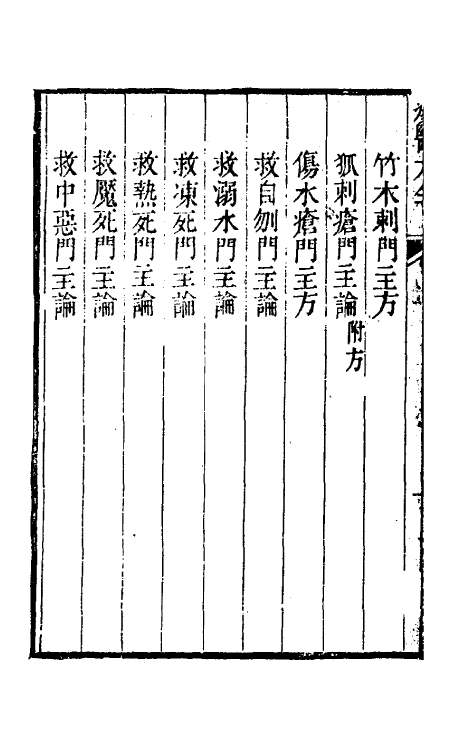 竹木刺門主方
狐刺瘡門主論附方
傷水瘡門主方
救自刎門主論
救溺水門主論
救凍死門主論
救熱死門主論
救魘死門主論
救中惡門主論